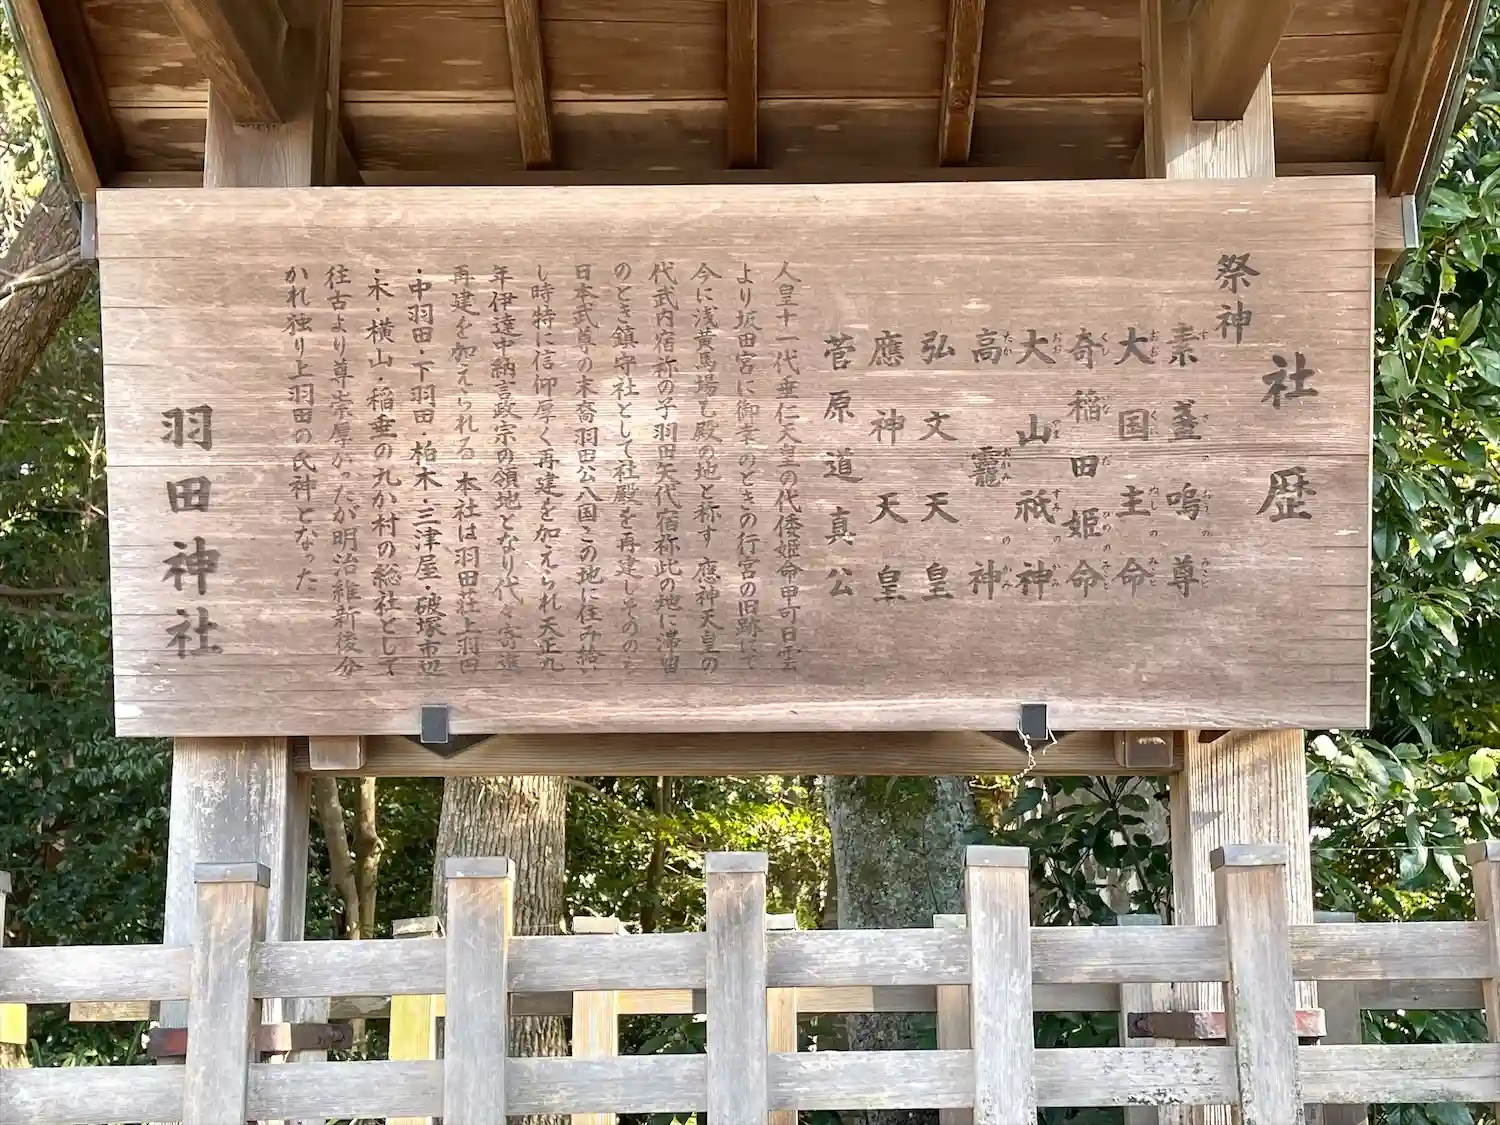 社歴
祭神
素盞嗚尊
大国主命
奇稲田姫命
大山祇神
高龗神
弘文天皇
應神天皇
菅原道真公
人皇十一代垂仁天皇の代倭姫命甲可日雲
より坂田宮に御幸のときの行宮の旧跡にて
今に浅黄馬場乙殿の地と称す應神天皇の
代武内宿祢の子羽田矢代宿祢此の地に滞留
のとき鎮守社として社殿を再建しそののち
日本武尊の末裔羽田公八国この地に住み給い
し時特に信仰厚く再建を加えられ天正九
年伊達中納言政宗の領地となり代々寄進
再建を加えられる 本社は羽田荘上羽田
・中羽田・下羽田・柏木・三津屋・破塚・市辺
・木・横山・稲垂の九か村の総社として
往古より尊崇厚かったが明治維新後分
かれ独り上羽田の氏神となった
羽田神社